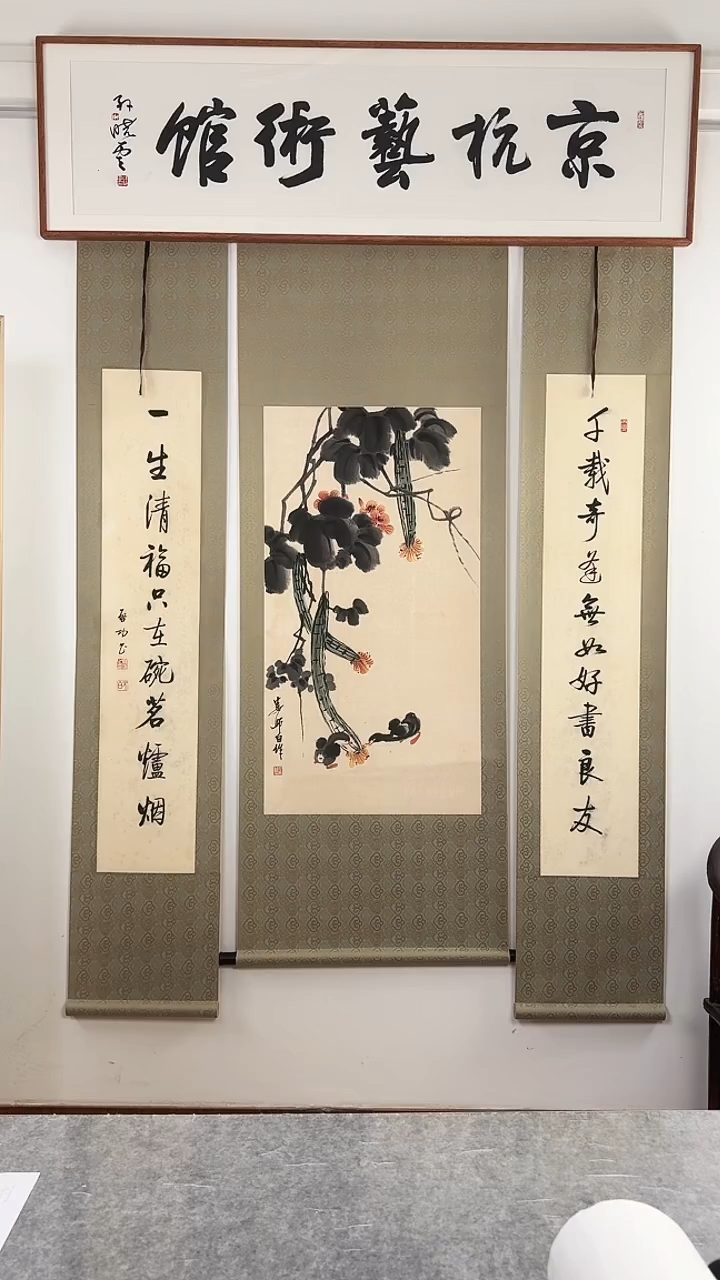 京杭藝術館
孙晓云
千载奇逢無如好書良友
一生清福只在碗茗爐烟
启功
娄师白作